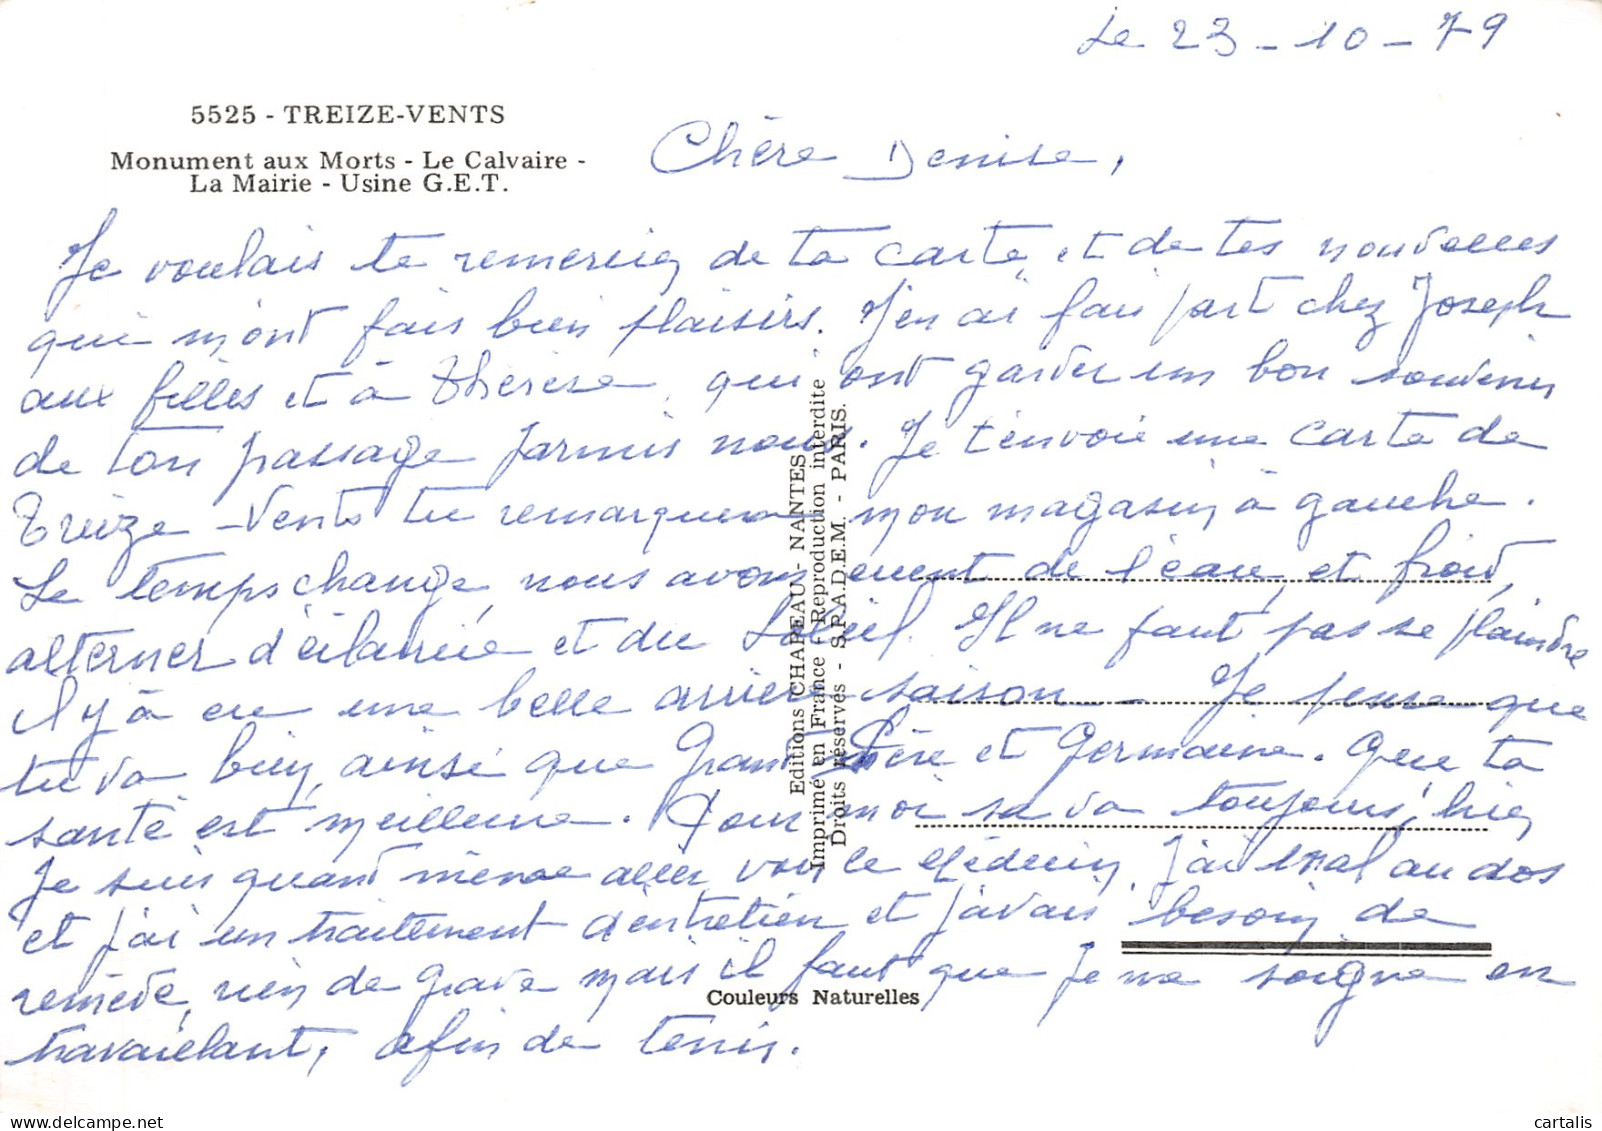 Le 23 - 10 - 79
5525 - TREIZE-VENTS
Monument aux Morts - Le Calvaire -
La Mairie - Usine G.E.T.
Chère Denise,
Je voulais te remercier de ta carte et de tes nouvelles
qui m'ont fais bien plaisirs. J'en ai fait part chez Joseph
aux filles et à Thérèse, qui ont garder un bon souvenir
de ton passage parmis nous. Je t'envoie une carte de
Treize-Vents tu remarquera mon magasin à gauche.
Le temps change, nous avons de l'eau, et froid,
alterner d'éclaircie et du Soleil. Il ne faut pas se plaindre
il y à eu une belle arrière saison - Je pense que
tu va bien, ainsi que Grand Mère et Germaine. Que ta
santé est meilleure. Pour moi sa va toujours bien
Je suis quand même aller voir le Médecin. J'ai mal au dos
et j'ai un traitement d'entretien et j'avais besoin de
remède, rien de grave mais il faut que je me soigne en
travaillant, afin de tenir.
Editions CHAPEAU - NANTES
Imprimé en France - Reproduction interdite
Droits réservés - S.P.A.D.E.M. - PARIS.
Couleurs Naturelles
cartalis